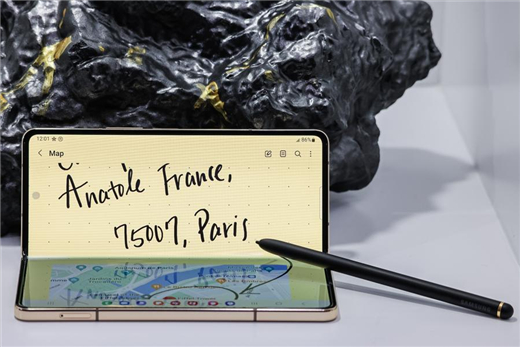 12:01
86%
Map
Anatole France,
75007, Paris
SAMSUNG